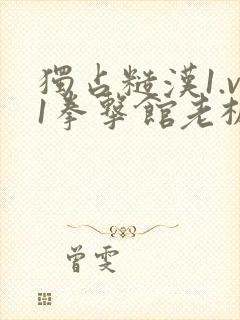 獨占糙漢1.v
1拳擊館老板
曾雯